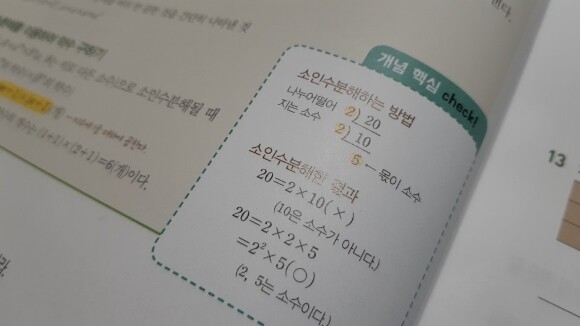 소인수분해될 때
(1+1)×(2+1)=6(개)이다.
개념 핵심 check!
소인수분해하는 방법
나누어떨어 2) 20
지는 소수 2) 10
5 ― 몫이 소수
소인수분해한 결과
20=2×10(×)
(10은 소수가 아니다.)
20=2×2×5
=2²×5(○)
(2, 5는 소수이다.)
13